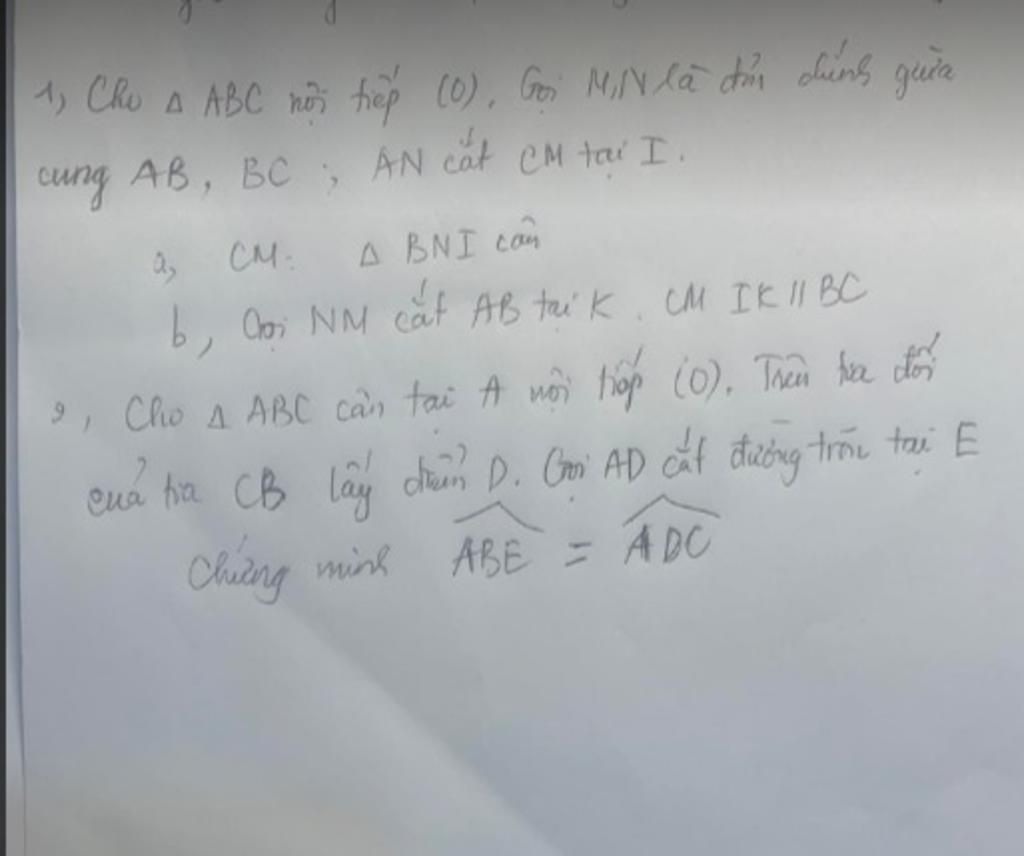 1, Cho Δ ABC nội tiếp (O). Gọi M,N là đỉn chính giữa
cung AB, BC ; AN cắt CM tại I.
a, CM: Δ BNI cân
b, Gọi NM cắt AB tại K. CM IK // BC
2, Cho Δ ABC cân tại A nội tiếp (O). Trên tia đối
của tia CB lấy điểm D. Gọi AD cắt đường tròn tại E
Chứng minh \widehat{ABE} = \widehat{ADC}